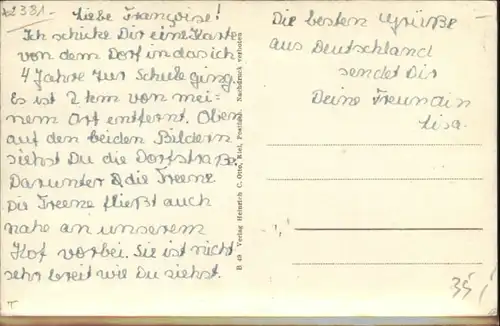 x2331.
Liebe Françoise!
Ich schicke Dir eine Karte
von dem Dorf in das ich
4 Jahre zur Schule ging.
Es ist 2 km von mei-
nem Ort entfernt. Oben
auf den beiden Bildern
siehst Du die Dorfstraße.
Darunter die Treene
Die Treene fließt auch
nahe an unserem
Hof vorbei. Sie ist nicht
sehr breit wie Du siehst.
B 49 Verlag Heinrich C. Otto, Kiel, Postfach. Nachdruck verboten
Die besten Grüße
aus Deutschland
sendet Dir
Deine Freundin
Lisa.
35,
T